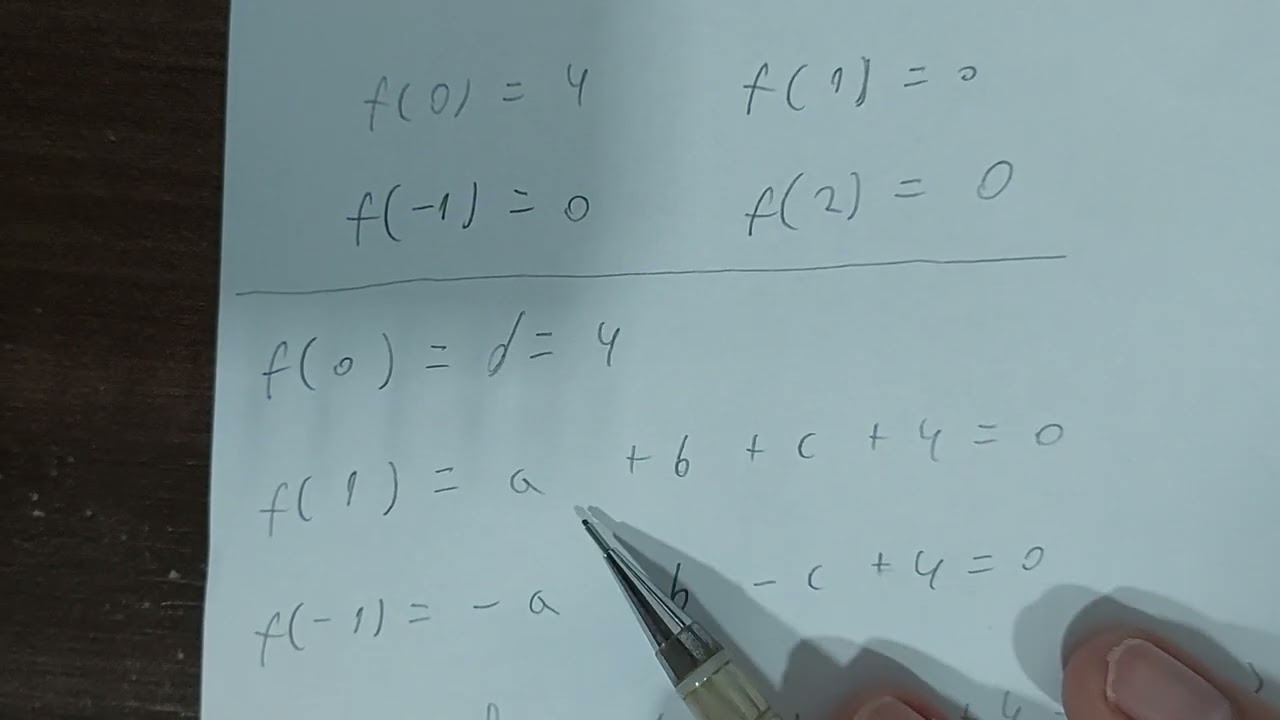 f(0) = 4 f(1) = 0
f(-1) = 0 f(2) = 0
f(0) = d = 4
f(1) = a + b + c + 4 = 0
f(-1) = - a b - c + 4 = 0
+ 4